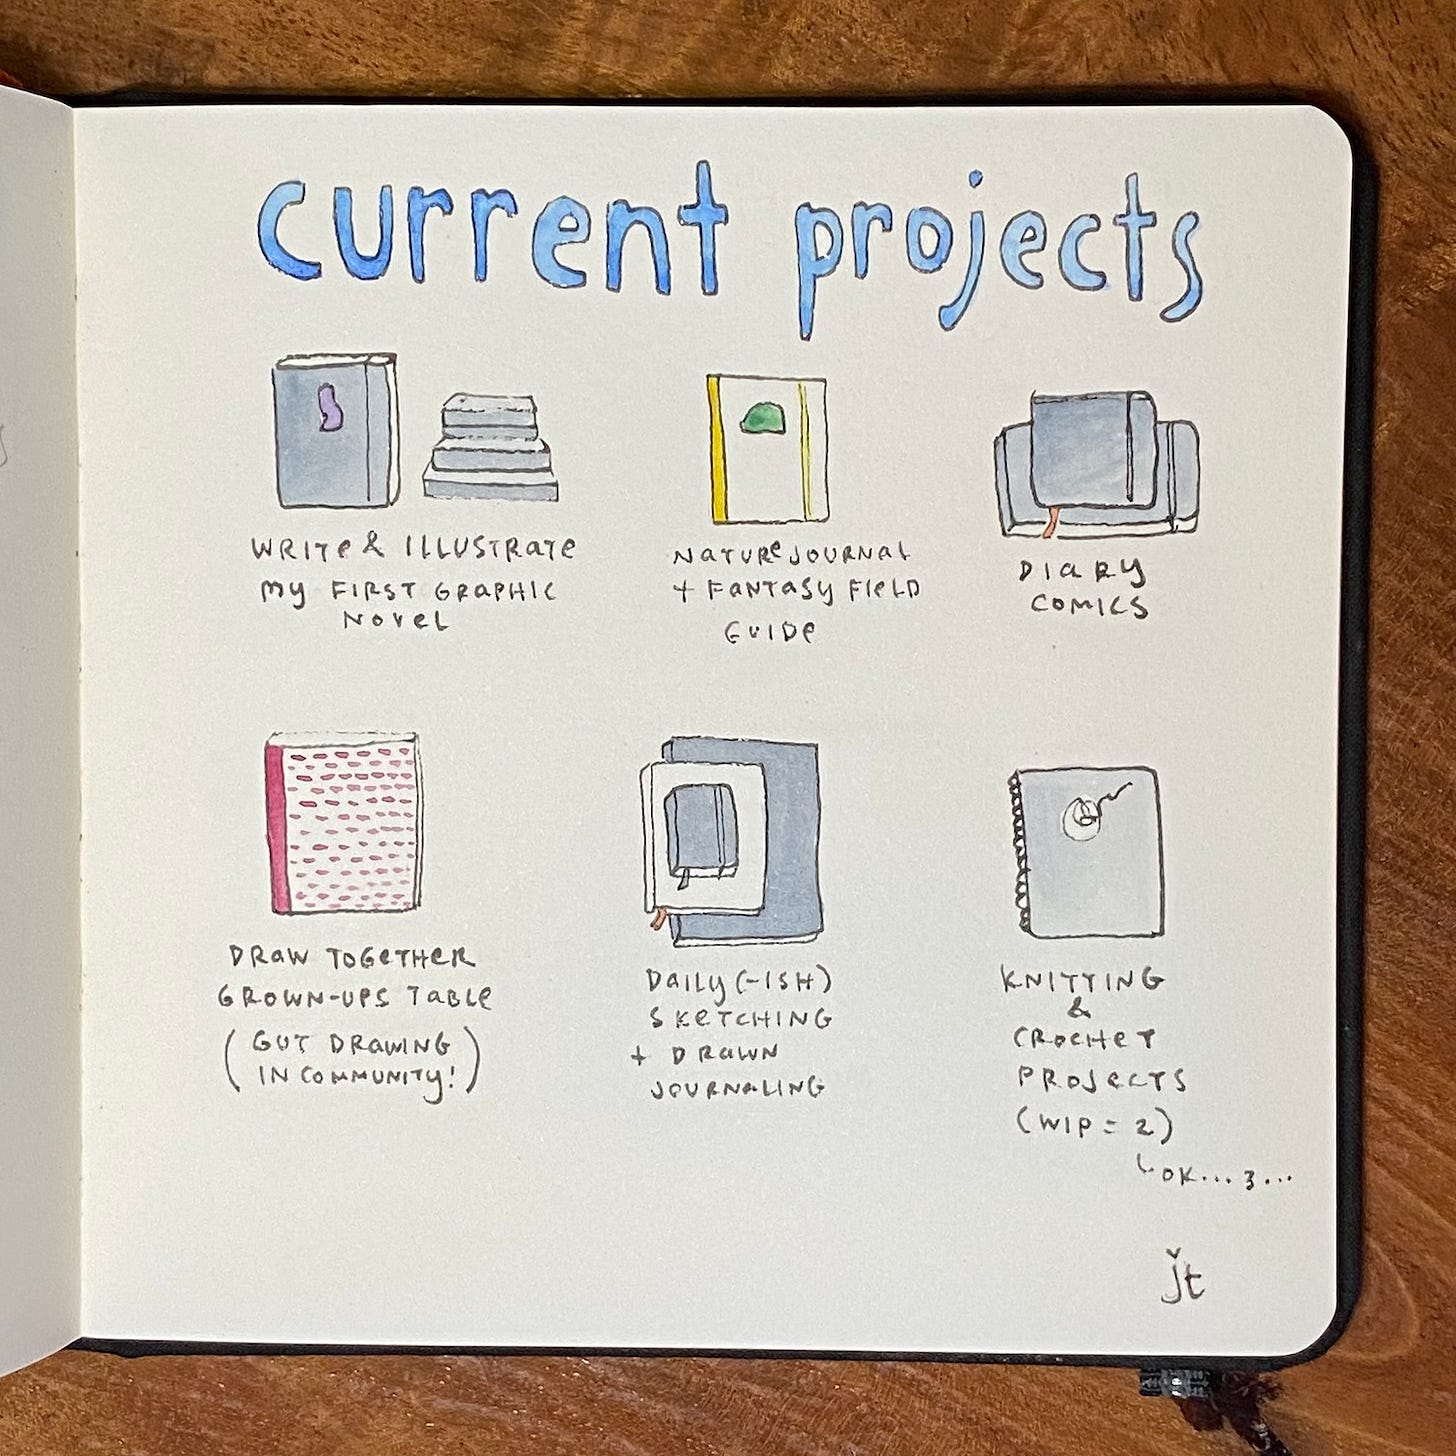 current projects
WRITE & ILLUSTRATE
MY FIRST GRAPHIC
NOVEL
NATURE JOURNAL
+ FANTASY FIELD
GUIDE
DIARY
COMICS
DRAW TOGETHER
GROWN-UPS TABLE
(GUT DRAWING
IN COMMUNITY!)
DAILY(-ISH)
SKETCHING
+ DRAWN
JOURNALING
KNITTING
&
CROCHET
PROJECTS
(WIP = 2)
OK... 3...
jt